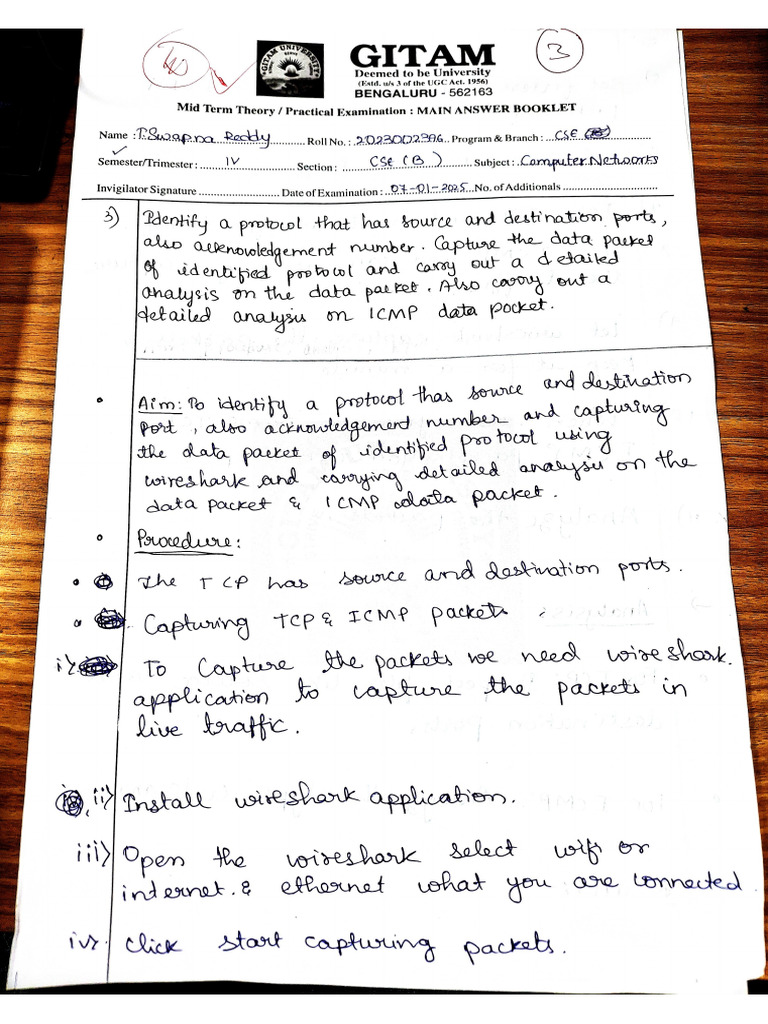 40
GITAM UNIVERSITY
GITAM
Deemed to be University
(Estd. u/s 3 of the UGC Act. 1956)
BENGALURU - 562163
3
Mid Term Theory / Practical Examination : MAIN ANSWER BOOKLET
Name : T. Swapna Reddy Roll No. : 2023002396 Program & Branch : CSE
Semester/Trimester : IV Section : CSE (B) Subject : Computer Networks
Invigilator Signature Date of Examination : 07-01-2025 No. of Additionals
3) Identify a protocol that has source and destination ports,
also acknowledgement number. Capture the data packet
of identified protocol and carry out a detailed
analysis on the data packet. Also carry out a
detailed analysis on ICMP data pocket.
Aim: To identify a protocol thas source and destination
port, also acknowledgement number and capturing
the data packet of identified protocol using
wireshark and carrying detailed analysis on the
data packet & ICMP data packet.
Procedure:
The TCP has source and destination ports.
Capturing TCP & ICMP packets
i) To Capture the packets we need wireshark.
application to capture the packets in
live traffic.
ii) Install wireshark application.
iii) Open the wireshark select wifi or
internet. & ethernet what you are connected
iv) Click start capturing packets.